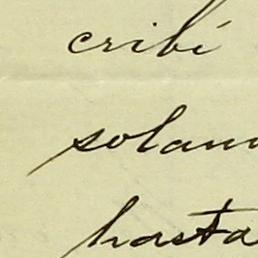 cribí
solam
hasta